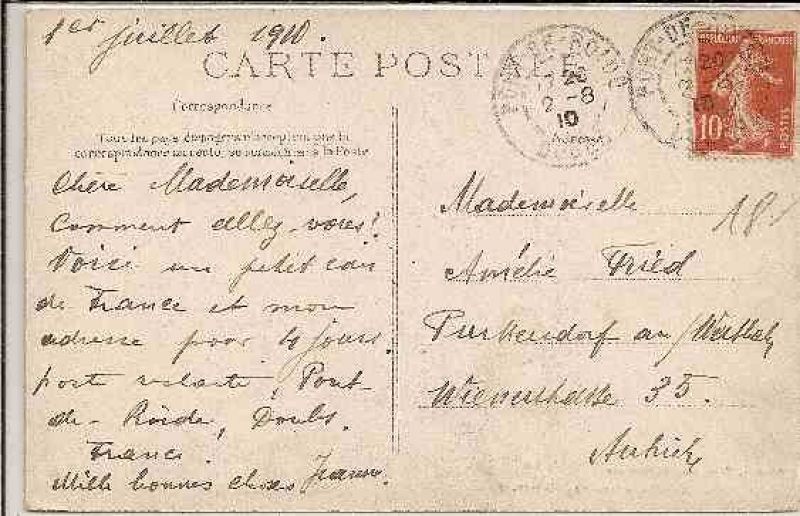 1er juillet 1910.
CARTE POSTALE
Correspondance
Tous les pays étrangers n'acceptent pas la
correspondance au recto, se renseigner à la Poste
Chère Mademoiselle,
Comment allez-vous?
Voici un petit coin
de France et mon
adresse pour 10 jours.
poste restante, Pont-
de-Roide, Doubs.
France.
Mille bonnes choses Jeanne.
PONT-DE-ROIDE
2-8
10
DOUBS
PONT-DE-
10
RÉPUBLIQUE FRANÇAISE
10
POSTES
Mademoiselle
Amélie Fried
Purkersdorf an/
Wienerstrasse 35.
Autriche
18